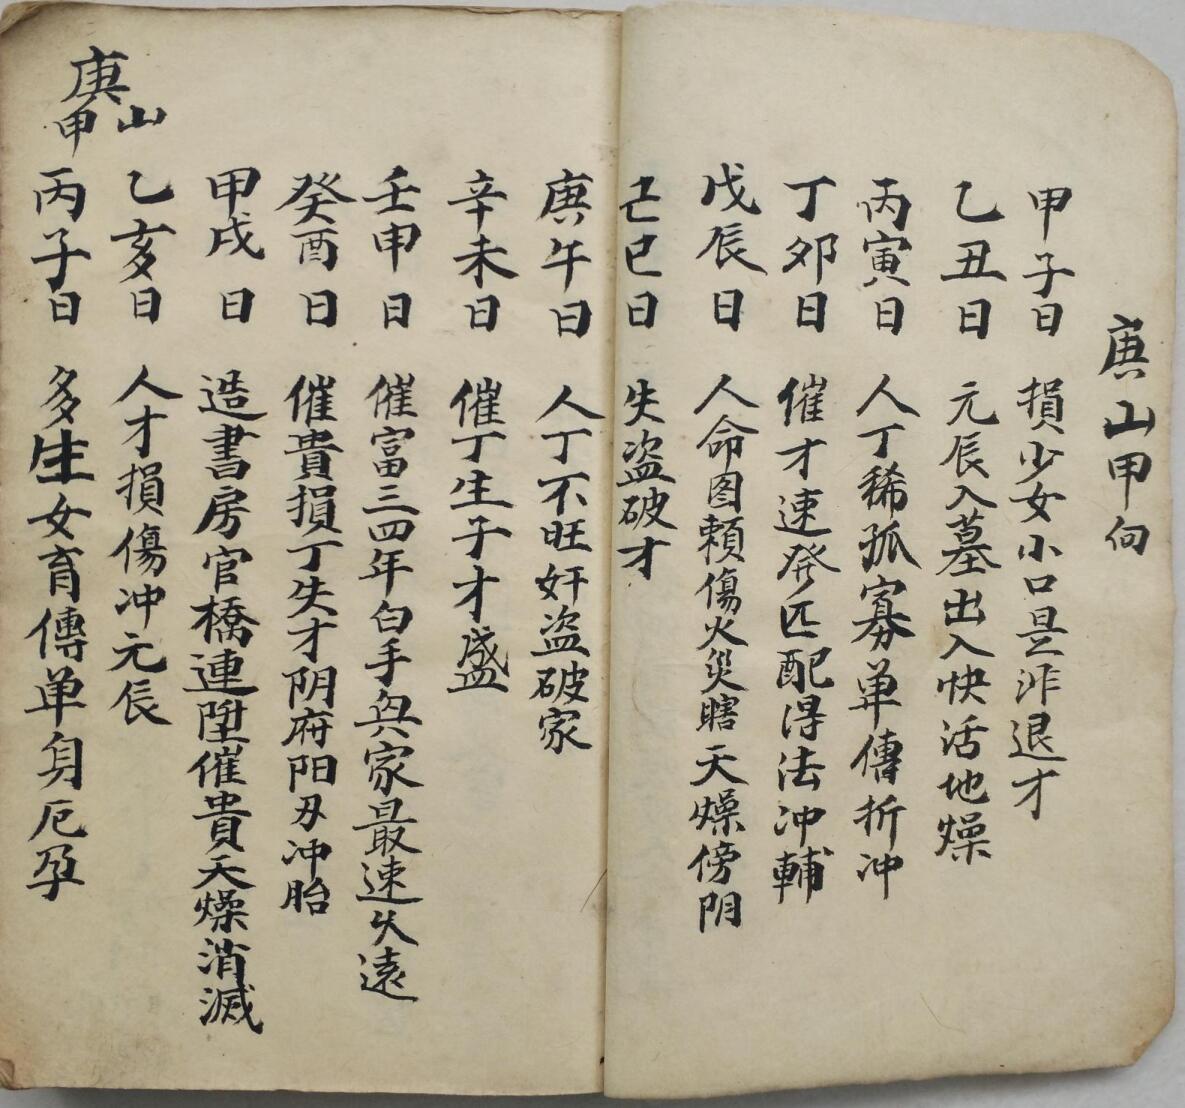 庚山甲向
甲子日 損少女小口是非退才
乙丑日 元辰入墓出入快活地燥
丙寅日 人丁稀孤寡单傳折冲
丁卯日 催才速発匹配得法冲輔
戊辰日 人命图賴傷火災瞎天燥傍阴
己巳日 失盗破才
庚午日 人丁不旺奸盗破家
辛未日 催丁生子才盛
壬申日 催富三四年白手興家最速久遠
癸酉日 催貴損丁失才阴府阳刃冲胎
甲戌日 造書房官橋連陞催貴天燥消滅
乙亥日 人才損傷冲元辰
丙子日 多生女育傳单身厄孕
庚山甲